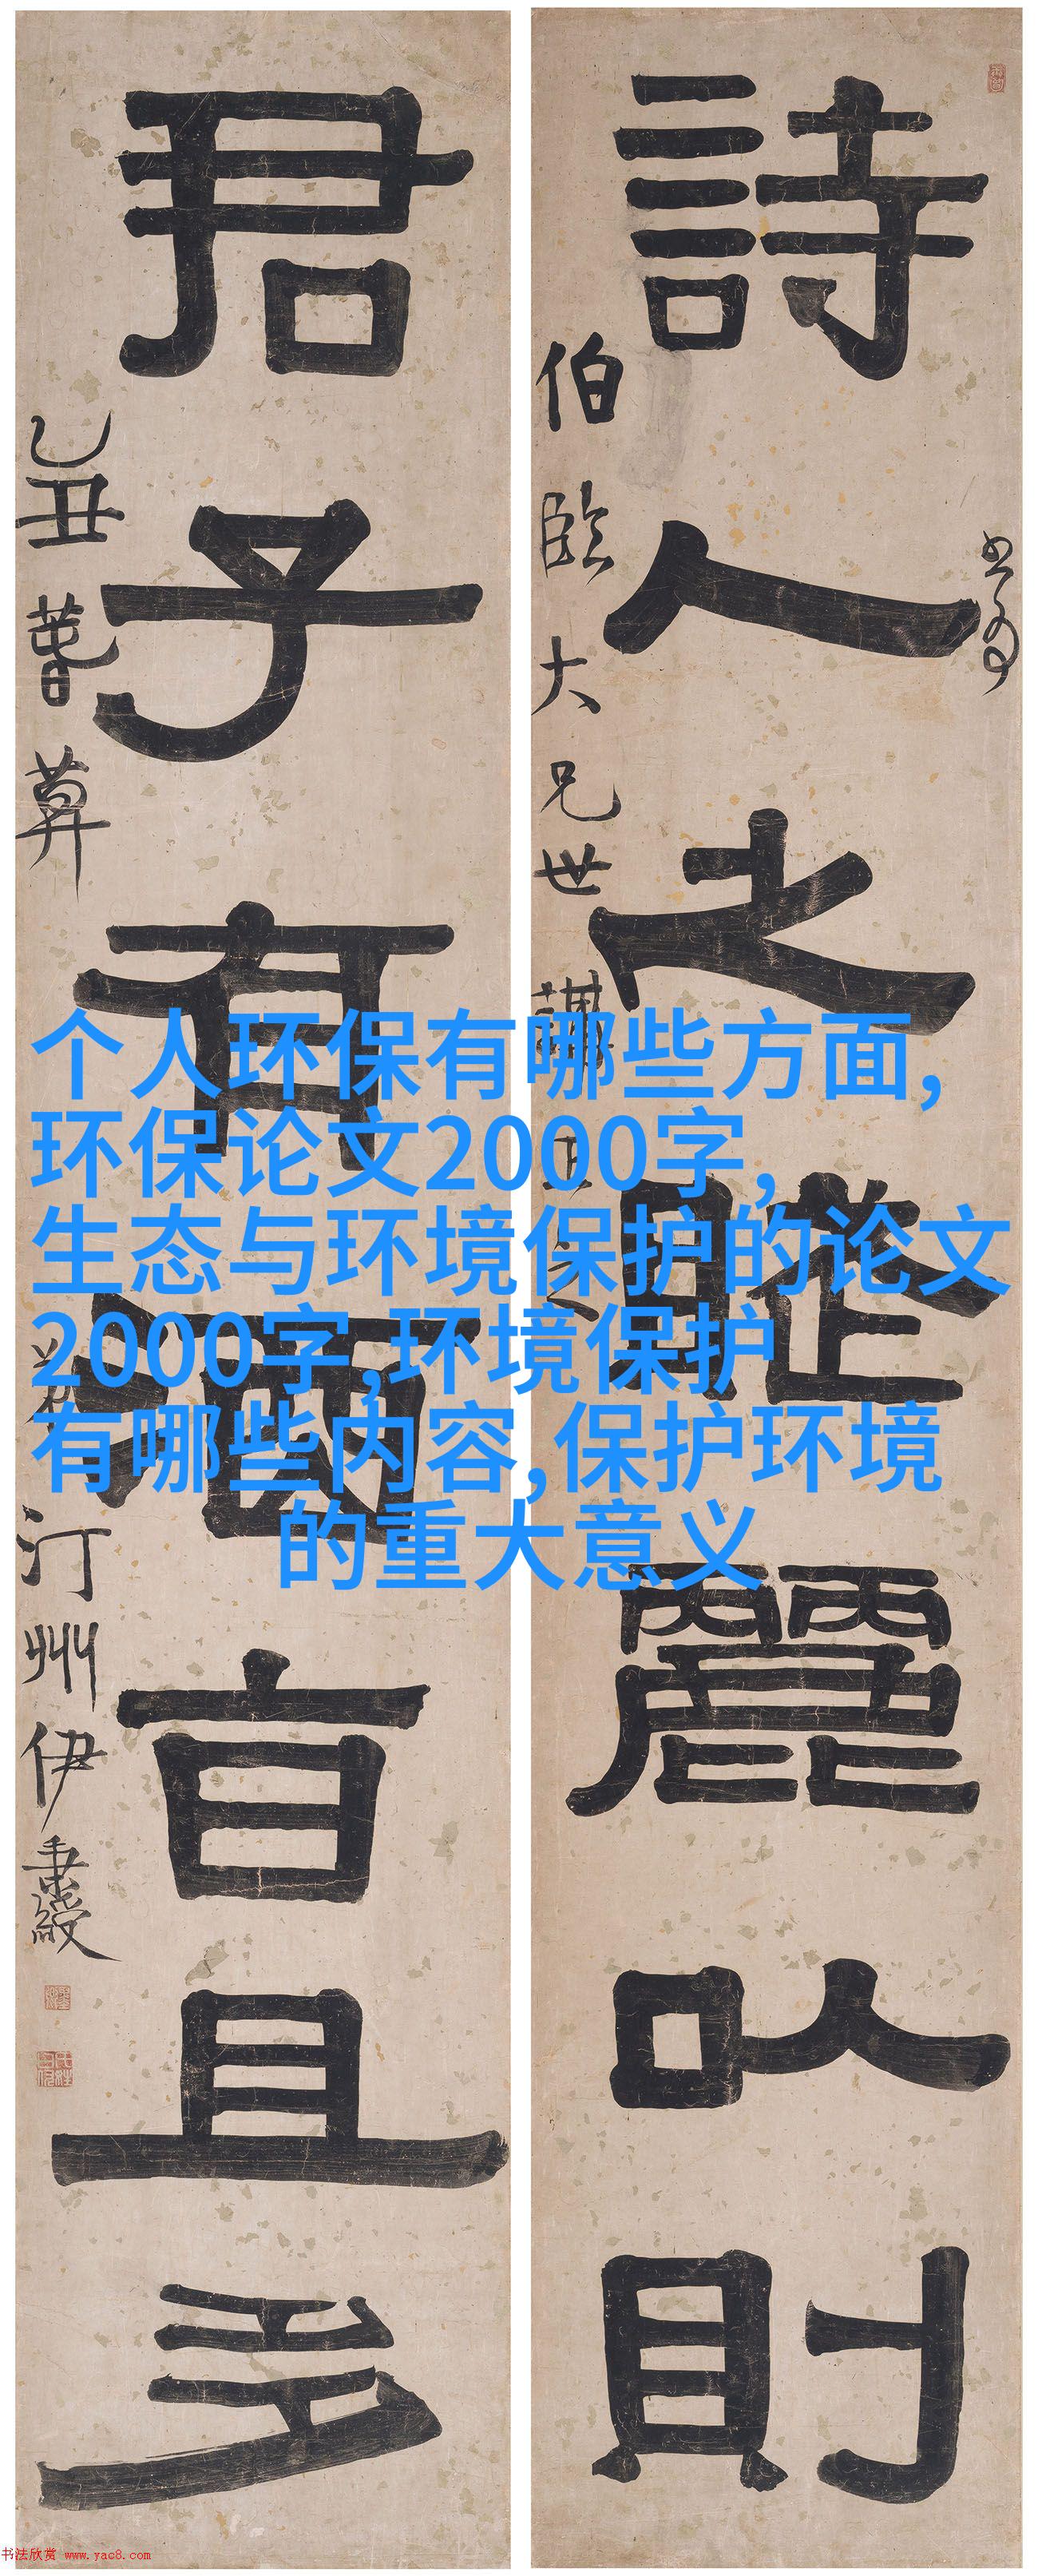 詩人之賦麗以則
伯臨大兄世講正之
君子有酒旨且多
乙丑
汀州伊秉綬
个人环保有哪些方面,
环保论文2000字,
生态与环境保护的论文
2000字,环境保护
有哪些内容,保护环境
的重大意义
书法欣赏 www.yac8.com